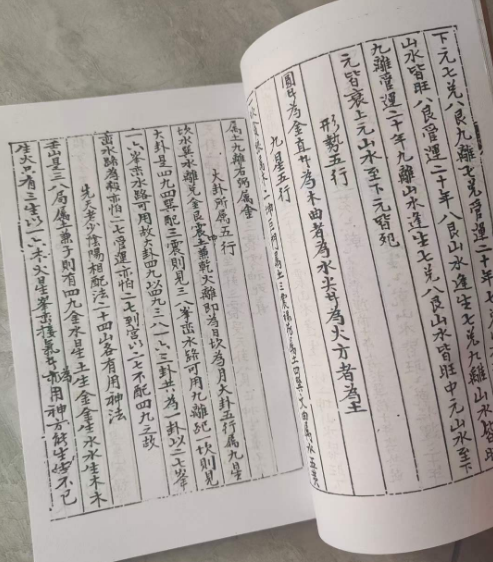 下元七兑八艮九離七兑管運二十年七兑八艮九離
山水皆旺八艮管運二十年八艮山水逢生七兑八艮山水皆旺中元山水至下
九離管運二十年九離山水逢生七兑八艮九離山水皆旺
元皆衰上元山水至下元皆死
形勢五行
圓者為金直者為木曲者為水尖者為火方者為土
九星五行
属土九離右弼属金
大卦所属五行
坎水巽木離兑金艮震土兼乾火離即為日坎為月大卦五行属九星
大卦是四九四巽配三震則見三八峯峦水路可用九離配一坎則見
一六峯峦水路可用故大卦四九以四九三八一六三卦共為一卦以二七峯
峦水路為殺亦怕二七管運亦怕二七到宫以二七不配四九之故
先天老少陰陽相配法二十四山各有用神法
若山是三八局倘立兼子則有四九金水星土生金金生水水生木木
生火只有三生以一六木火星峯峦接氣為用神方能生生不已